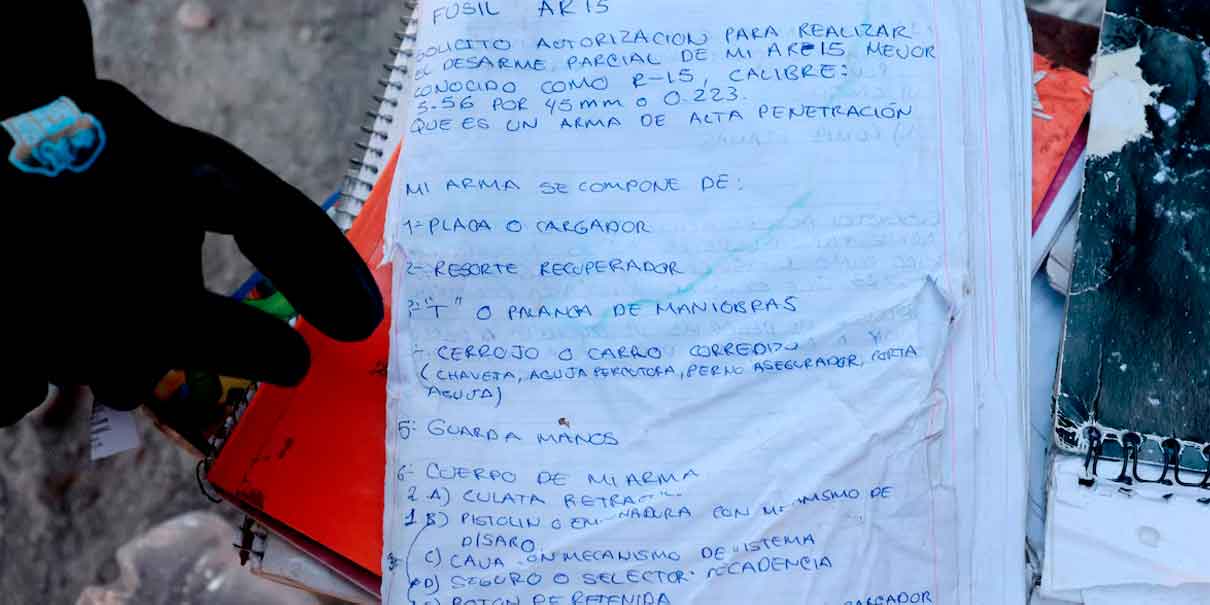 FUSIL AR15
SOLICITO AUTORIZACION PARA REALIZAR
EL DESARME PARCIAL DE MI ARE15 MEJOR
CONOCIDO COMO R-15, CALIBRE:
5.56 POR 45 mm o 0.223.
QUE ES UN ARMA DE ALTA PENETRACIÓN
MI ARMA SE COMPONE DE:
1- PLACA O CARGADOR
2- RESORTE RECUPERADOR
3- "T" O PALANCA DE MANIOBRAS
CERROJO O CARRO CORREDIZO Y
(CHAVETA, AGUJA PERCUTORA, PERNO ASEGURADOR, PORTA
AGUJA)
5- GUARDA MANOS
6- CUERPO DE MI ARMA
2 A) CULATA
1 B) PISTOLIN O CON DE
DISARO
C) CAJA MECANISMO DE
D) SEGURO O SELECTOR CADENCIA
BOTON DE RETENIDA CARGADOR